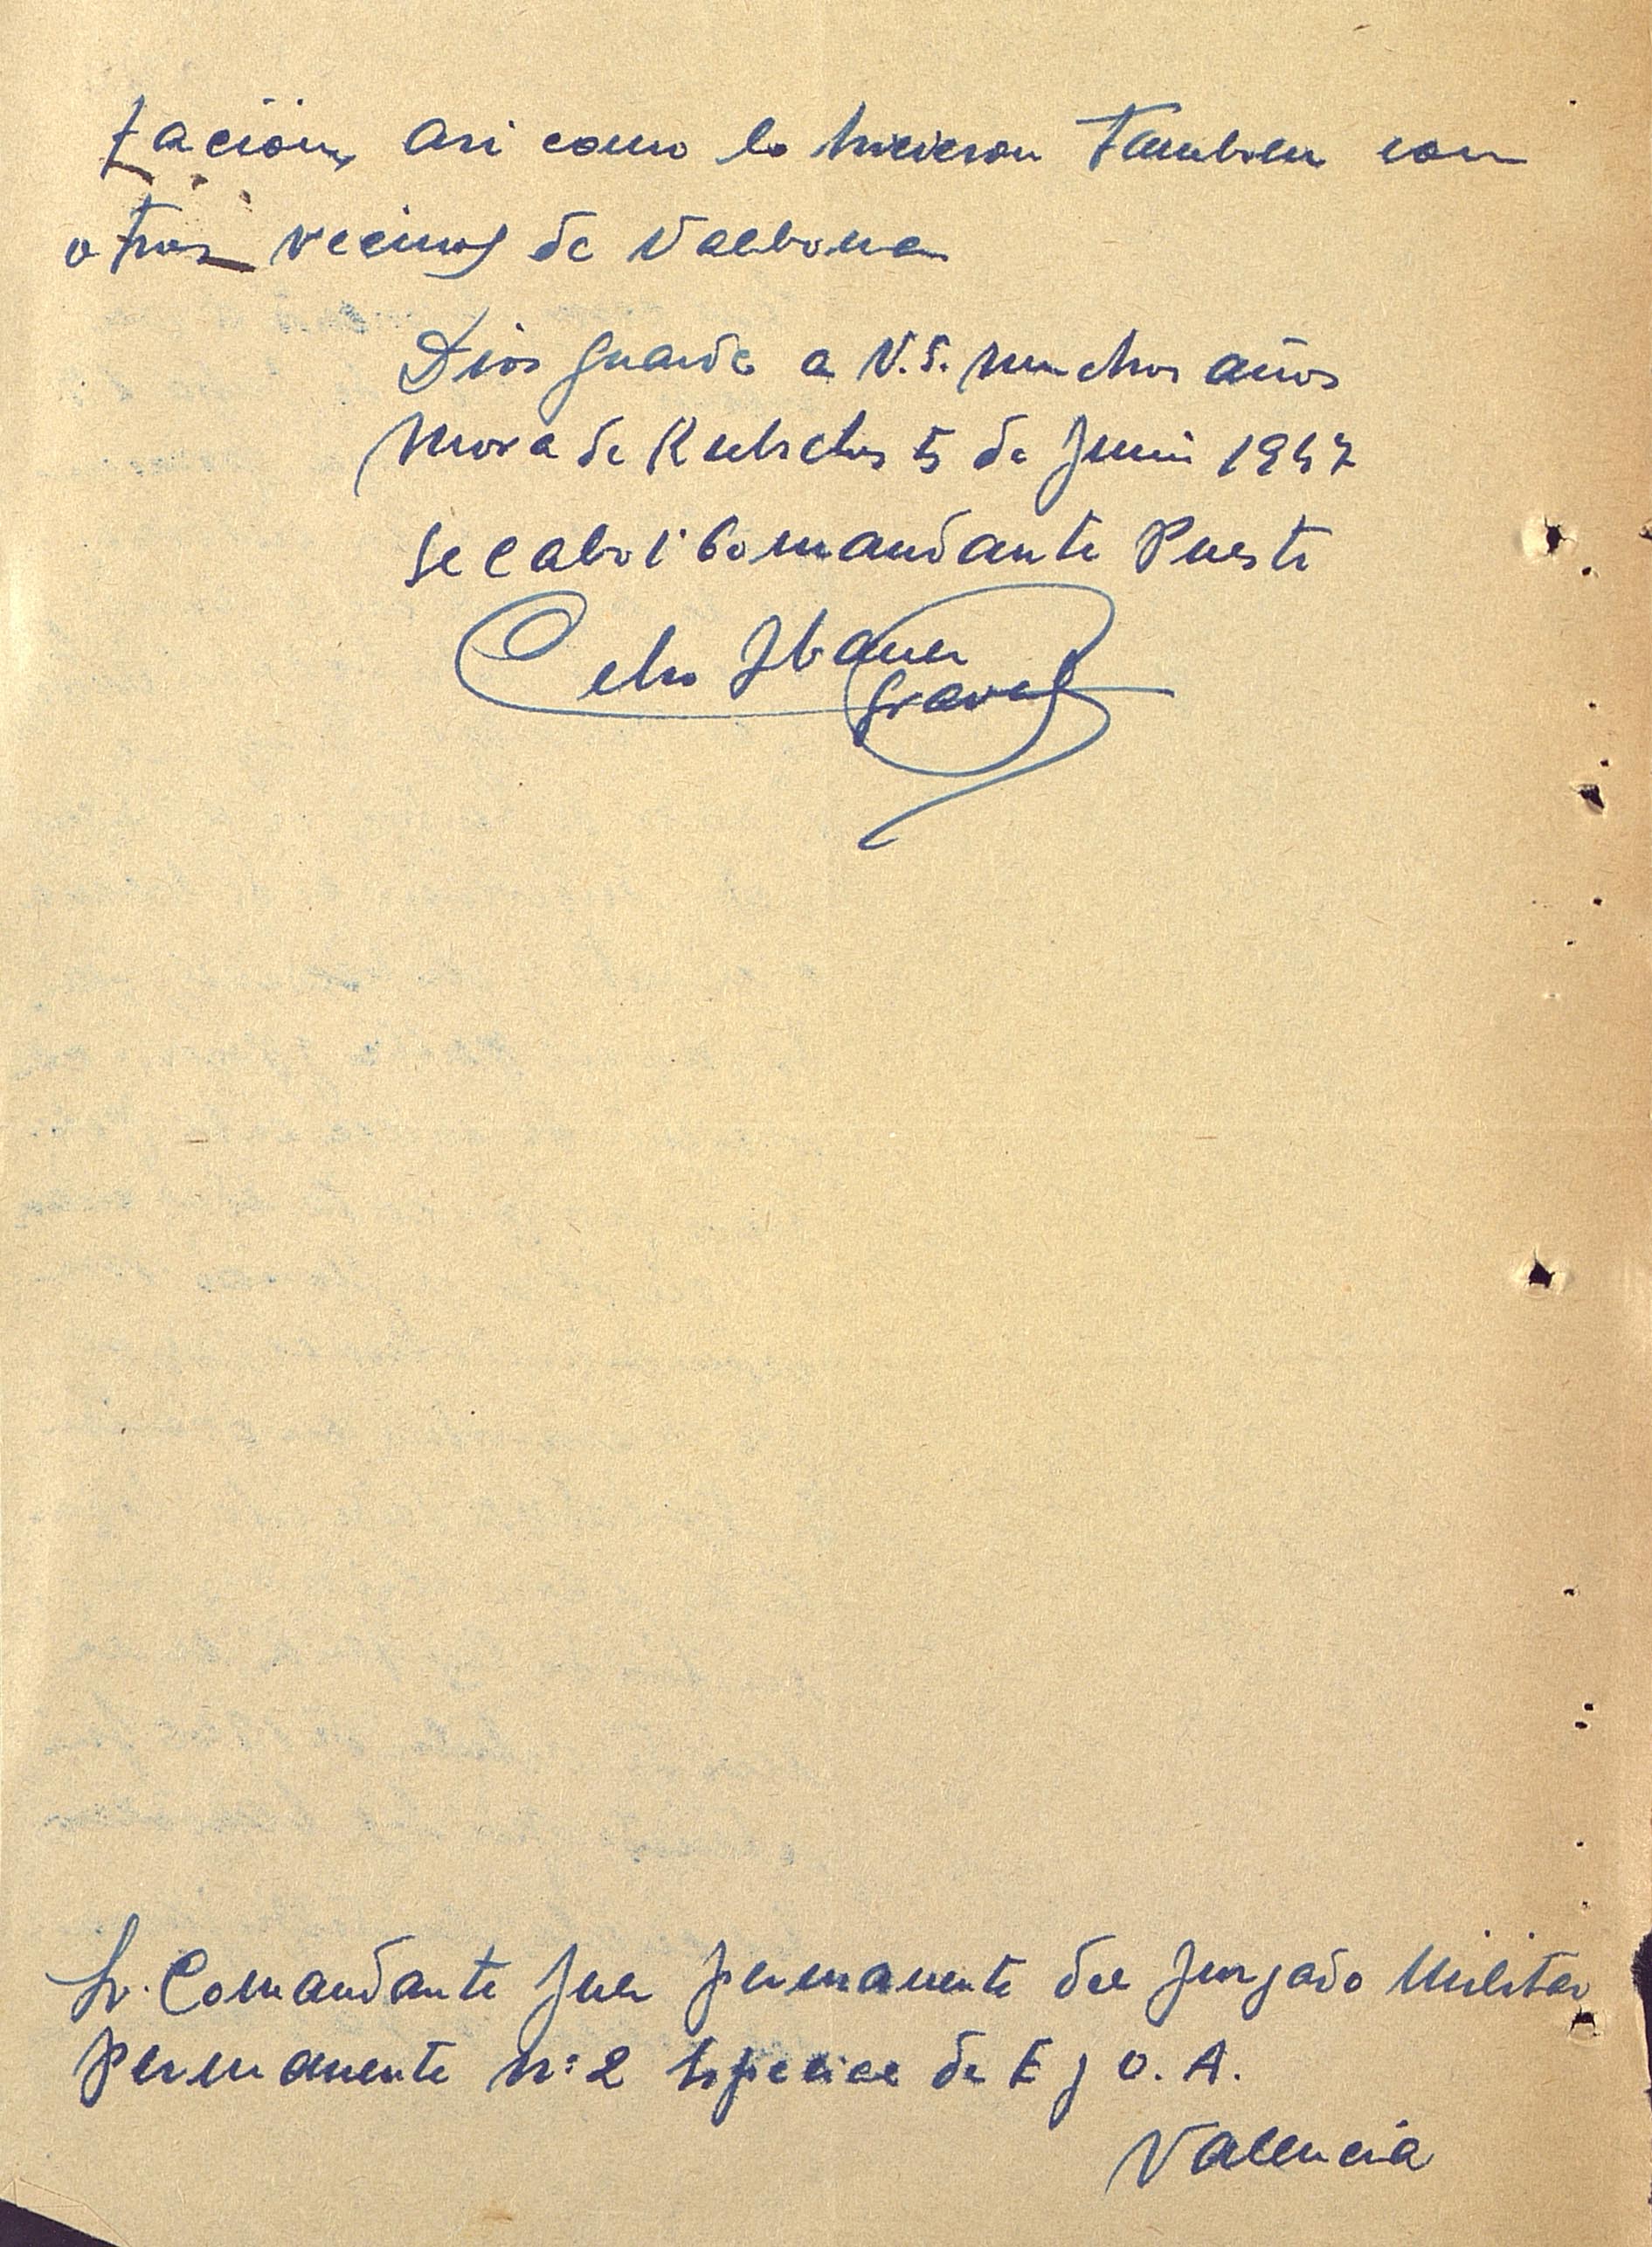 tación, asi como lo hicieron tambien con
otros vecinos de Valbona
Dios guarde a V.S. muchos años
Mora de Rubielos 5 de Junio 1947
El Cabo 1º Comandante Puesto
Celso Ibañez
Gravas
Sr. Comandante Juez permanente del Juzgado Militar
Permanente nº 2 Especial de E y O. A.
Valencia